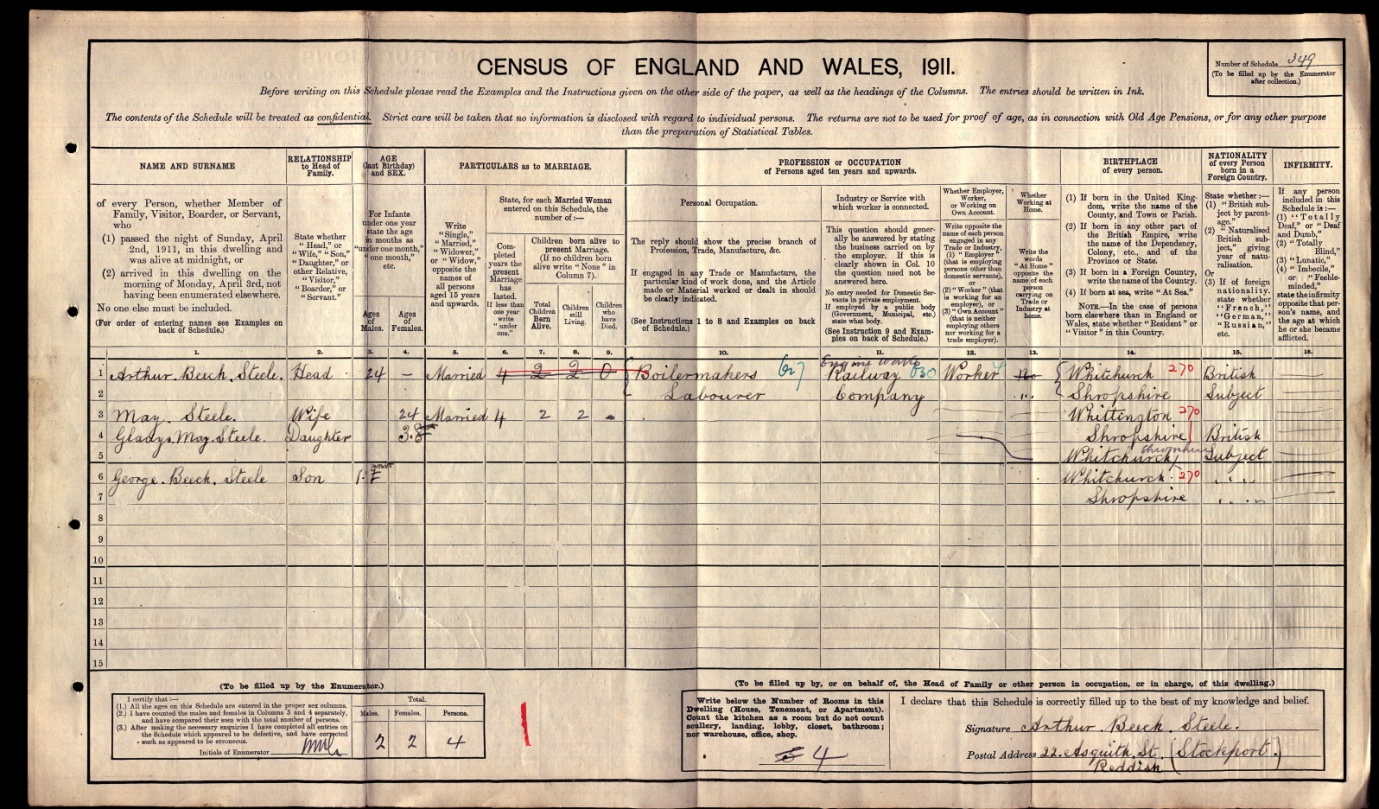 CENSUS OF ENGLAND AND WALES, 1911.
Number of Schedule 349
(To be filled up by the Enumerator after collection.)
Before writing on this Schedule please read the Examples and the Instructions given on the other side of the paper, as well as the headings of the Columns. The entries should be written in Ink.
The contents of the Schedule will be treated as confidential. Strict care will be taken that no information is disclosed with regard to individual persons. The returns are not to be used for proof of age, as in connection with Old Age Pensions, or for any other purpose
than the preparation of Statistical Tables.
NAME AND SURNAME
of every Person, whether Member of
Family, Visitor, Boarder, or Servant,
who
(1) passed the night of Sunday, April
2nd, 1911, in this dwelling and
was alive at midnight, or
(2) arrived in this dwelling on the
morning of Monday, April 3rd, not
having been enumerated elsewhere.
No one else must be included.
(For order of entering names see Examples on
back of Schedule.)
RELATIONSHIP
to Head of
Family.
State whether
"Head," or
"Wife," "Son,"
"Daughter," or
other Relative,
"Visitor,"
"Boarder," or
"Servant."
AGE
(last Birthday)
and SEX.
For Infants
under one year
state the age
in months as
"under one month,"
"one month,"
etc.
Ages
of
Males.
Ages
of
Females.
PARTICULARS as to MARRIAGE.
Write
"Single,"
"Married,"
"Widower,"
or "Widow,"
opposite the
names of
all persons
aged 15 years
and upwards.
State, for each Married Woman
entered on this Schedule, the
number of:—
Completed
years the
present
Marriage
has
lasted.
If less than
one year
write
"under
one."
Children born alive to
present Marriage.
(If no children born
alive write "None" in
Column 7).
Total
Children
Born
Alive.
Children
still
Living.
Children
who
have
Died.
PROFESSION or OCCUPATION
of Persons aged ten years and upwards.
Personal Occupation.
The reply should show the precise branch of
Profession, Trade, Manufacture, &c.
If engaged in any Trade or Manufacture, the
particular kind of work done, and the Article
made or Material worked or dealt in should
be clearly indicated.
(See Instructions 1 to 8 and Examples on back
of Schedule.)
Industry or Service with
which worker is connected.
This question should gener-
ally be answered by stating
the business carried on by
the employer. If this is
clearly shown in Col. 10
the question need not be
answered here.
No entry needed for Domestic Ser-
vants in private employment.
If employed by a public body
(Government, Municipal, etc.)
state what body.
(See Instruction 9 and Exam-
ples on back of Schedule.)
Whether Employer,
Worker,
or Working on
Own Account.
Write opposite the
name of each person
engaged in any
Trade or Industry,
(1) "Employer"
(that is employing
persons other than
domestic servants),
or
(2) "Worker" (that
is working for an
employer), or
(3) "Own Account"
(that is neither
employing others
nor working for a
trade employer).
Whether
Working at
Home.
Write the
words
"At Home"
opposite the
name of each
person
carrying on
Trade or
Industry at
home.
BIRTHPLACE
of every person.
(1) If born in the United King-
dom, write the name of the
County, and Town or Parish.
(2) If born in any other part of
the British Empire, write
the name of the Dependency,
Colony, etc., and of the
Province or State.
(3) If born in a Foreign Country,
write the name of the Country.
(4) If born at sea, write "At Sea."
NOTE.—In the case of persons
born elsewhere than in England or
Wales, state whether "Resident" or
"Visitor" in this Country.
NATIONALITY
of every Person
born in a
Foreign Country.
State whether:—
(1) "British sub-
ject by parent-
age."
(2) "Naturalised
British sub-
ject," giving
year of natu-
ralisation.
Or
(3) If of foreign
nationality,
state whether
"French,"
"German,"
"Russian,"
etc.
INFIRMITY.
If any person
included in this
Schedule is:—
(1) "Totally
Deaf," or "Deaf
and Dumb,"
(2) "Totally
Blind,"
(3) "Lunatic,"
(4) "Imbecile,"
or "Feeble-
minded,"
state the infirmity
opposite that per-
son's name, and
the age at which
he or she became
afflicted.
1. 2. 3. 4. 5. 6. 7. 8. 9. 10. 11. 12. 13. 14. 15. 16.
Engine works
1 Arthur Beech Steele. Head 24 – Married 4 2 2 0 Boilermakers Railway 630 Worker No Whitchurch 270 British
2 Labourer Company Shropshire Subject
3 May Steele. Wife 24 Married 4 2 2 - Whittington 270
4 Gladys May Steele. Daughter 3 Shropshire British
5 Whitchurch Shropshire Subject
6 George Beech Steele Son Whitchurch 270
7 Shropshire
8
9
10
11
12
13
14
15
(To be filled up by the Enumerator.)
I certify that:—
(1.) All the ages on this Schedule are entered in the proper sex columns.
(2.) I have counted the males and females in Columns 3 and 4 separately,
and have compared their sum with the total number of persons.
(3.) After making the necessary enquiries I have completed all entries on
the Schedule which appeared to be defective, and have corrected
such as appeared to be erroneous.
Initials of Enumerator
Total.
Males. Females. Persons.
2 2 4
(To be filled up by, or on behalf of, the Head of Family or other person in occupation, or in charge, of this dwelling.)
Write below the Number of Rooms in this
Dwelling (House, Tenement, or Apartment).
Count the kitchen as a room but do not count
scullery, landing, lobby, closet, bathroom;
nor warehouse, office, shop.
4
I declare that this Schedule is correctly filled up to the best of my knowledge and belief.
Signature Arthur Beech Steele.
Postal Address 22. Asquith St. (Stockport.)
Reddish